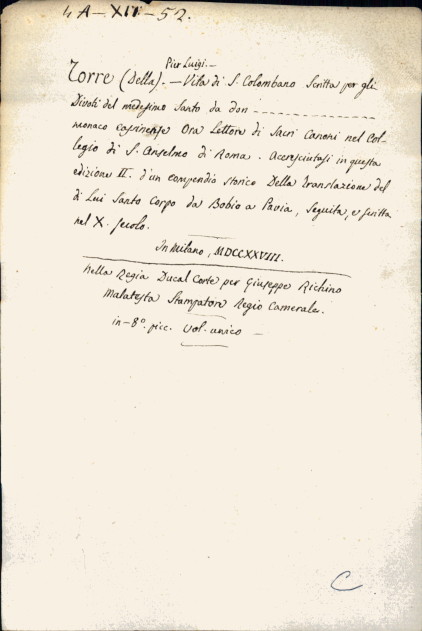 4 A - XII - 52.
Pier Luigi. -
Torre (Della). - Vita di S. Colombano Scritta per gli
Divoti del medesimo Santo da don - - - - - - - -
monaco casinense Ora Lettore di Sacri Canoni nel Col-
legio di S. Anselmo di Roma. Accresciutasi in questa
edizione II. d'un compendio storico Della Translazione del
di Lui Santo Corpo da Bobio a Pavia, Seguita, e scritta
nel X. secolo.
In Milano, MDCCXXVIII.
Nella Regia Ducal Corte per Giuseppe Richino
Malatesta Stampatore Regio Camerale.
in-8°. picc. vol. unico -
C